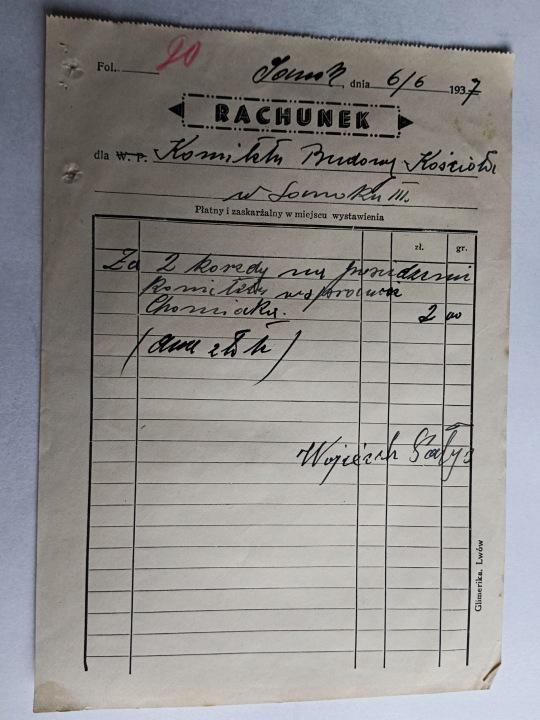 Fol. 20
Sanok, dnia 6/6 1937
RACHUNEK
dla W. P. Komitetu Budowy Kościoła
w Sanoku III.
Płatny i zaskarżalny w miejscu wystawienia
zł. gr.
Za 2 na
Komitetu
Chomiaka. 2 00
(dwa złote)
Wojciech
Glimerika. Lwów